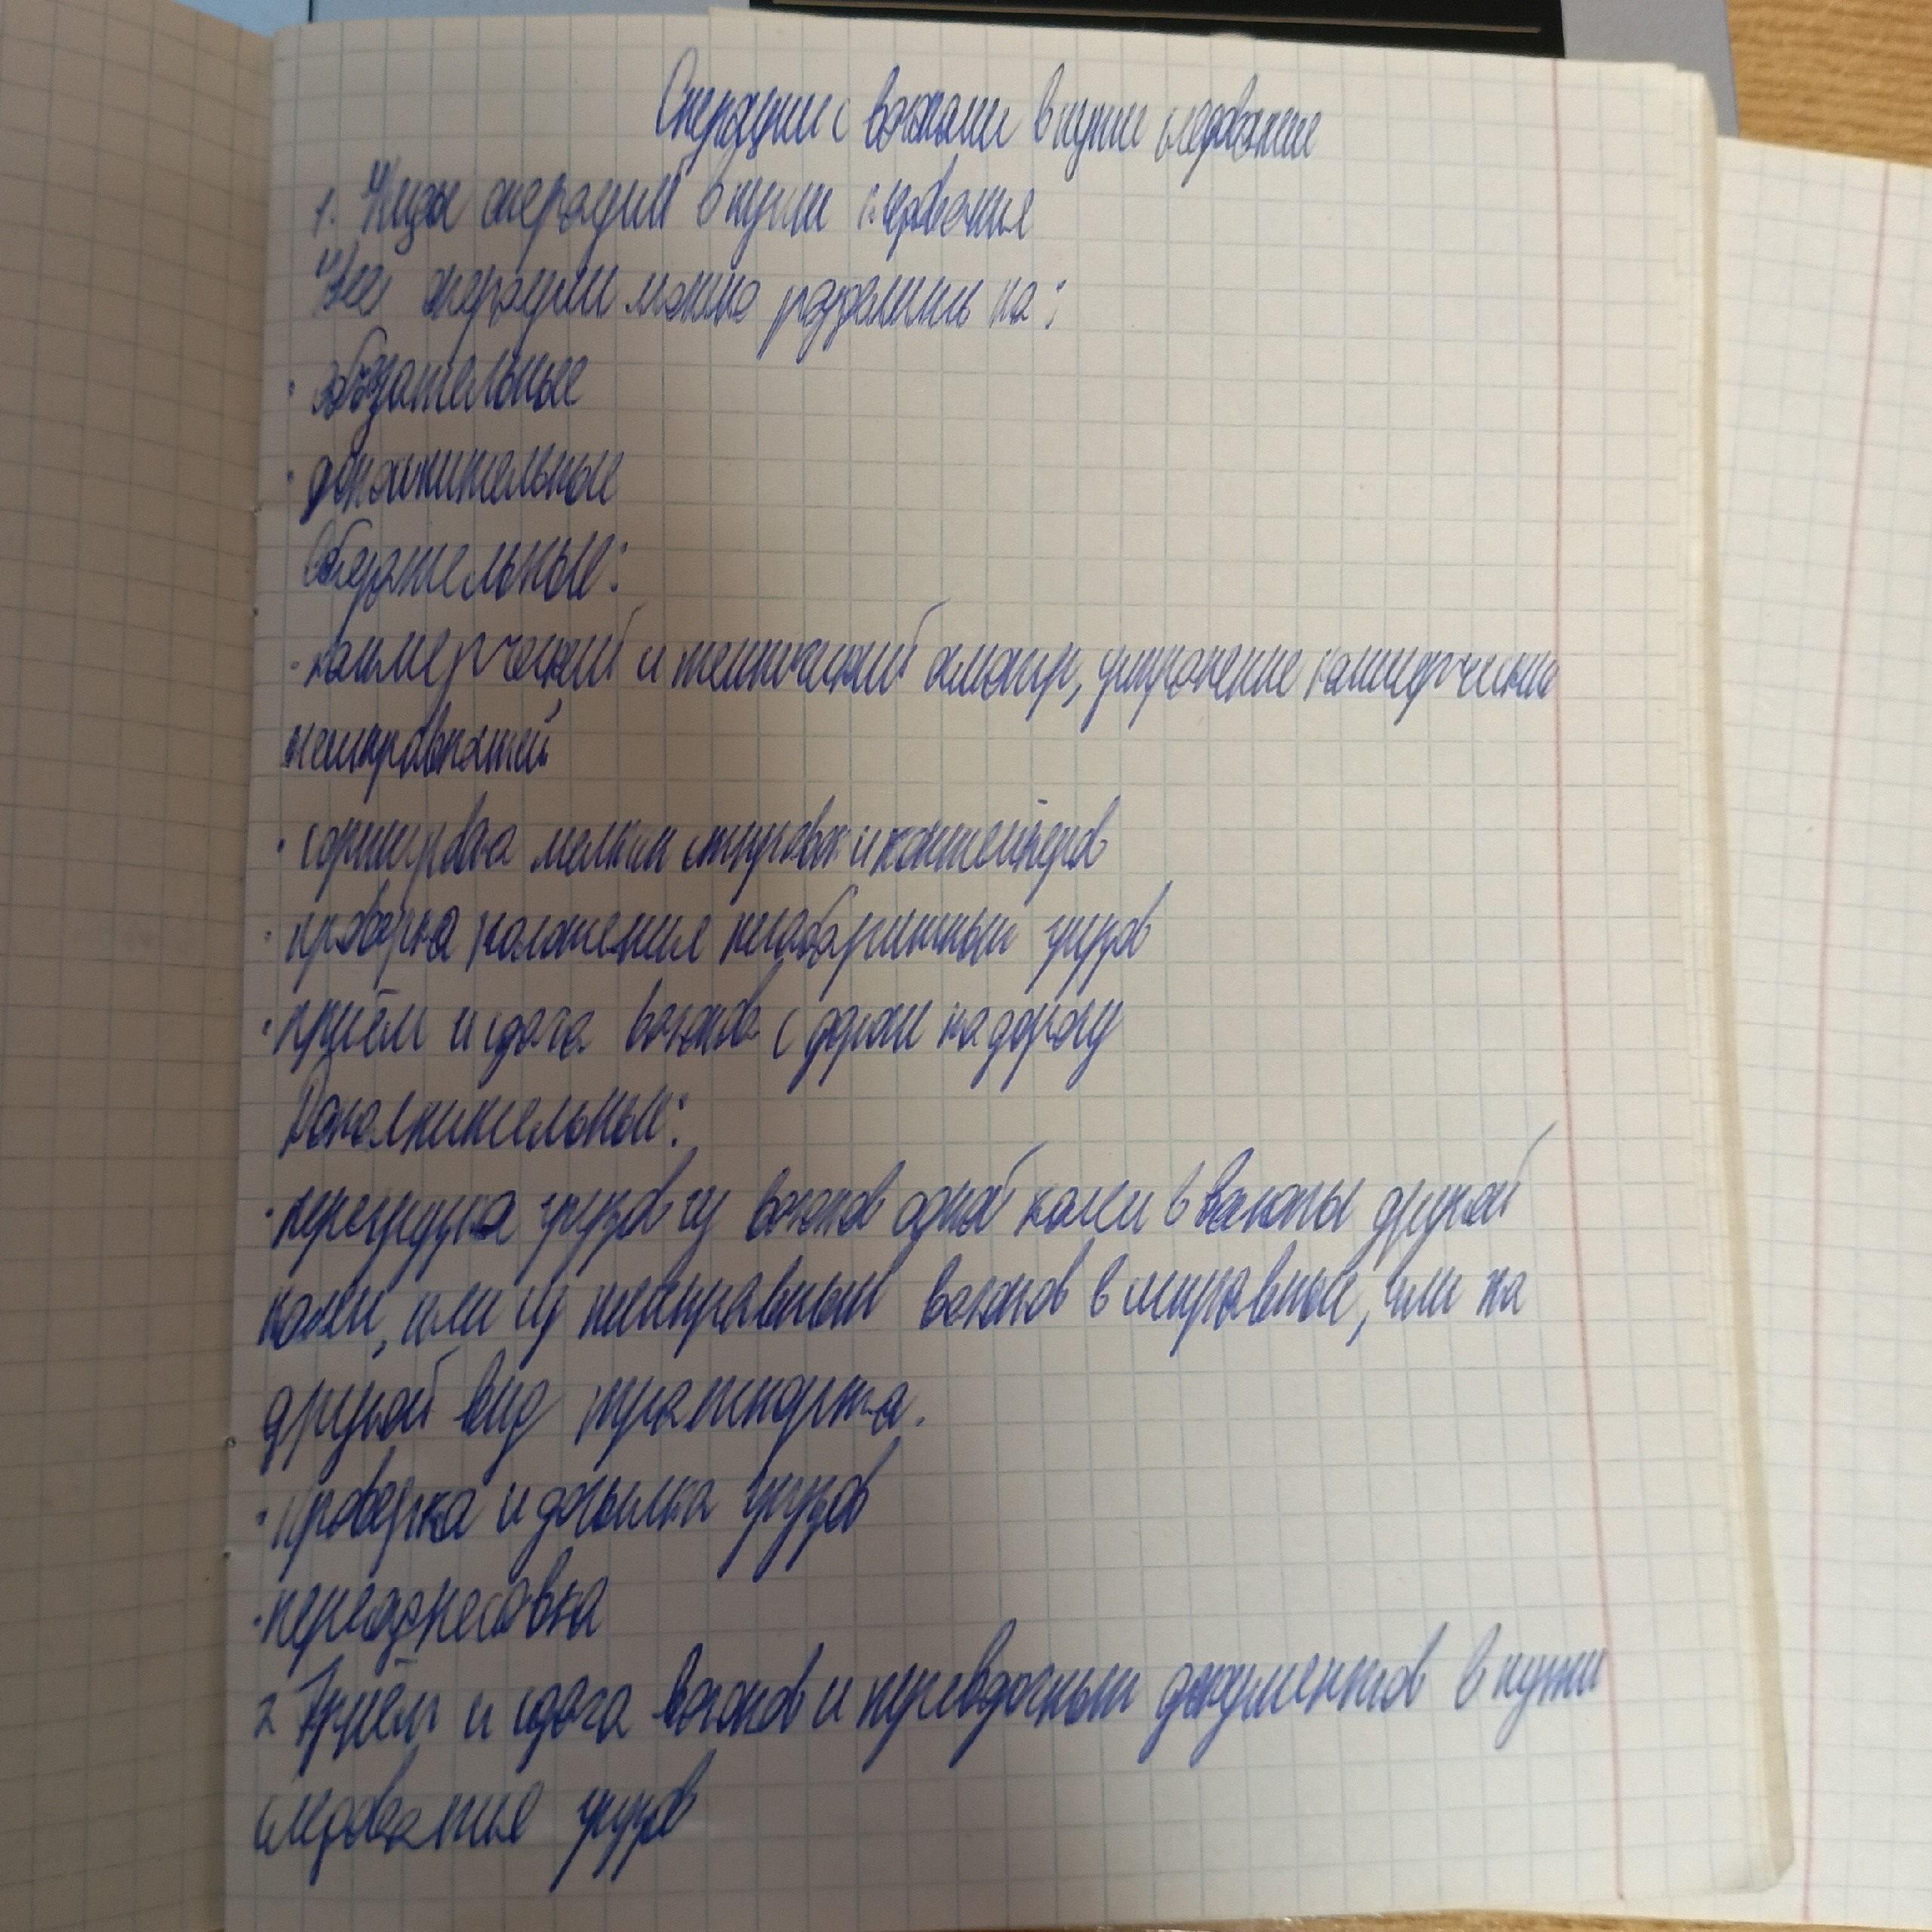 Операции с вагонами в пути следование
1. Виды операций в пути следования
Все операции можно разделить на:
· обязательные
· дополнительные
Обязательные:
· коммерческий и технический осмотр, устронение коммерческих
неисправностей
· сортировка мелких отправок и контейнеров
· проверка положения негабаритных грузов
· приём и сдача вагонов с дороги на дорогу
Дополнительные:
· перегрузка грузов из вагонов одной колеи в вагоны другой
колеи, или из неисправных вагонов в исправные, или на
другой вид транспорта.
· проверка и досылка грузов
· переадресовка
2 Приём и сдача вагонов и перевозочных документов в пути
следования грузов